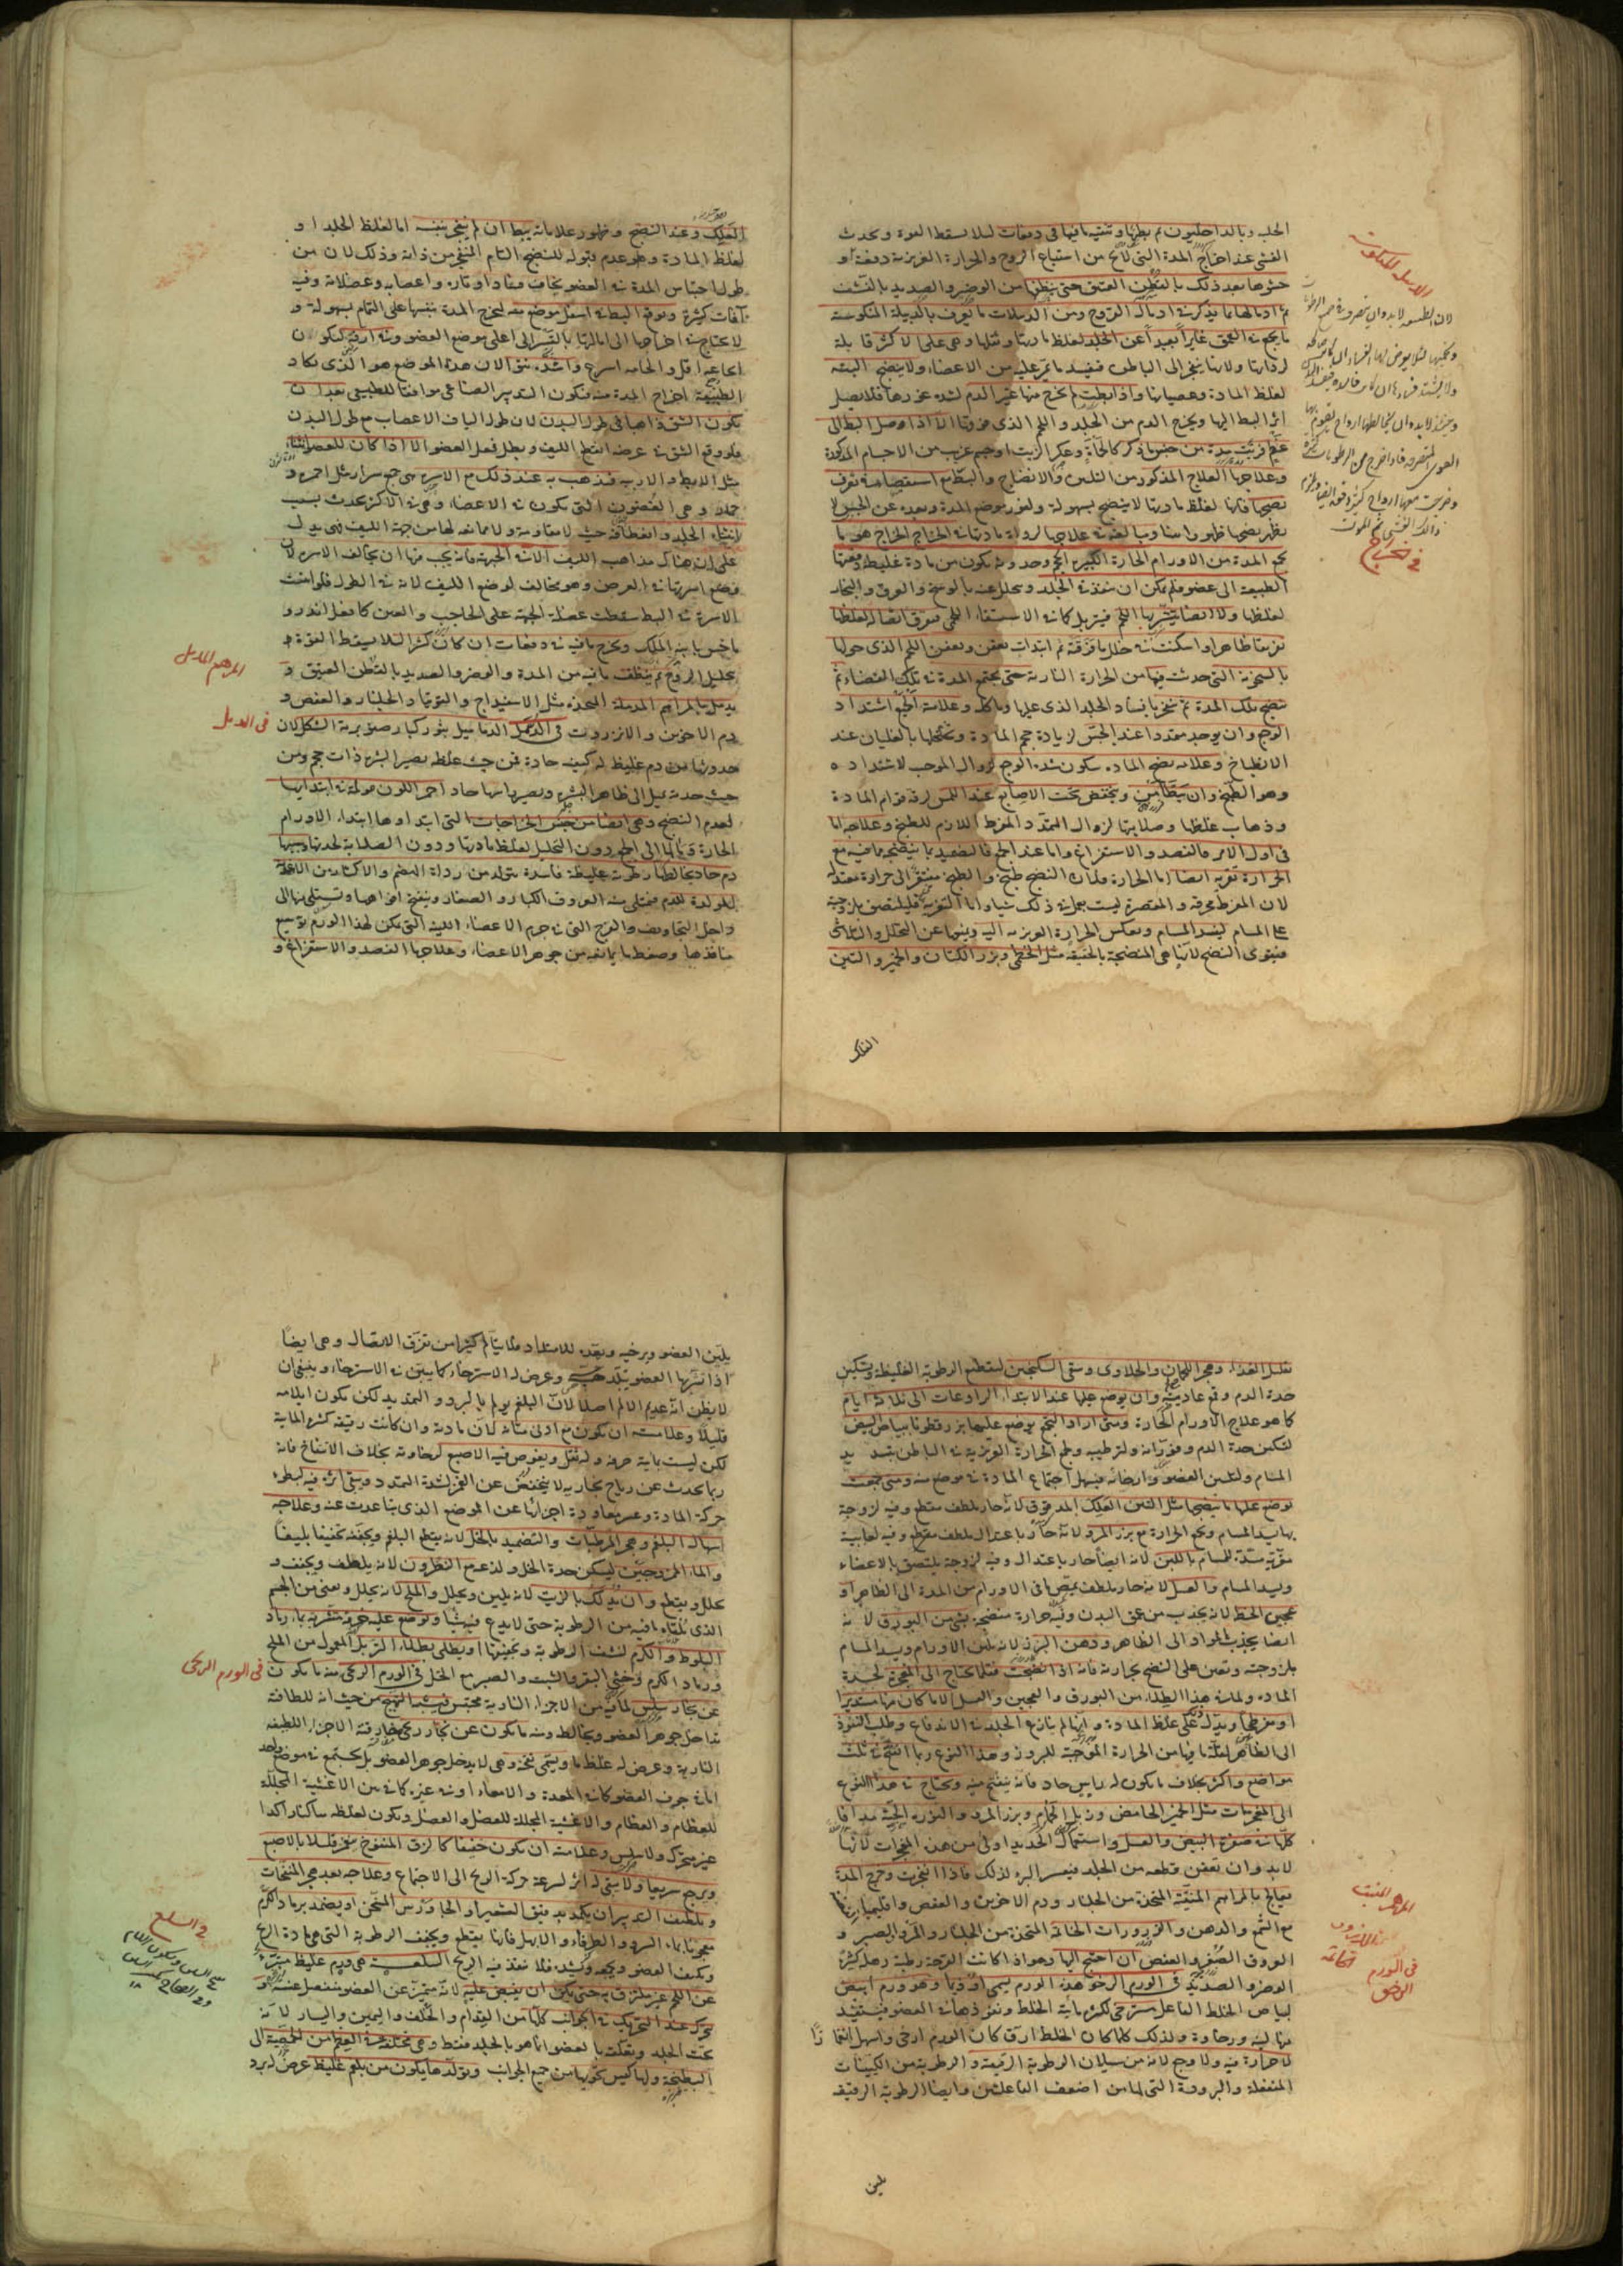 الحلب وبالداخليون ثم بطها وتنقية ما فيها في دفعات لئلا يسقط القوة ويحدث
الغشي عند اخراج المدة التي من استتباع الروح والحرارة الغريزية دفعة او
حشوها بعد ذلك بالقطن العتيق حتى ينظفها من الوضر والصديد بالنشف
ثم ادمالها بما يذكر في ادمال القروح ومن الدبيلات ما يعرف بالدبيلة المنكوسة
ما يجمع في العمق غايرا بعيدا عن الجلد لغلظ مادتها وثقلها وهي على الاكثر قاتلة
لردائتها ولانها تنفجر الى الباطن فيفسد ما تمر عليه من الاعضاء ولا ينضج البتة
لغلظ المادة وعصيانها واذا بطت لم يخرج منها غير الدم لشدة غورها فلا يصل
اثر البط اليها ويخرج الدم من الجلد و اللحم الذي فوقها الا اذا وصل البط الى
وعلاجها العلاج المذكور من التليين والانضاج والبط مع استقصاء في تعرف
نضجها فانها لغلظ مادتها لا ينضج بسهولة ولغور موضع المدة وبعده عن الجس لا
يظهر نضجها ظهورا بينا وبالغة في علاجها لرداءة مادتها في الخراج الخراج هو ما
يجمع المدة من الاورام الحارة الكبيرة الحجم وحدوثه يكون من مادة غليظة دفعتها
الطبيعة الى عضو فلم يمكن ان ينفذ في الجلد ويتحلل عنه بالوسخ والعرق والبخار
لغلظها ولا ايضا يتشربها اللحم فيتربل كما في الاستسقاء اللحمي فتفرق اتصاله لغلظها
تفريقا ظاهرا واسكنت في خلل ما فرقته ثم ابتدات تعفن وتعفن اللحم الذي حولها
بالسخونة التي حدثت فيها من الحرارة النارية حتى يجتمع المدة في تلك الفضاء ثم
ينضج تلك المدة ثم تنفجر بافساد الجلد الذي عليها وتاكله وعلامة الجمع اشتداد
الوجع وان يوجد متمددا عند الجس لزيادة حجم المادة وتخلخلها بالغليان عند
الانطباخ وعلامة نضج المادة سكون شدة الوجع لزوال الموجب لاشتداده
وهو الطبخ وان يتطامن وينخفض تحت الاصابع عند اللمس لرقة قوام المادة
وذهاب غلظها وصلابتها لزوال التمدد المفرط اللازم للطبخ وعلاجه اما
في اول الامر فالفصد والاستفراغ واما عند الجمع فالتضميد بما ينضجه مما فيه مع
الحرارة تغرية ايضا اما الحرارة فلان النضج طبخ والطبخ مفتقر الى حرارة معتدلة
لان المفرط محرقة و المقصرة ليست بعمل في ذلك شيا واما التغرية فليلتصق بلزوجته
على المسام ليسد المسام وينعكس الحرارة الغريزية اليه ويمنعها عن التحلل والتلاشي
فيقوى النضج لانها هي المنضجة بالحقيقة مثل الخطمي وبزر الكتان والخمير والتين
العلك
في الخراج
العلك وعند النضج وظهور علاماته يبط ان لم ينفجر بنفسه اما لغلظ الجلد او
لغلظ المادة وهو عدم قبوله للنضج التام المنفجر من ذاته وذلك لان من
طول احتباس المدة في العضو يخاف فساد اوتاره واعصابه وعضلاته وفيه
آفات كثيرة ويوقع البط في اسفل موضع منه ليخرج المدة بنفسها على التمام بسهولة و
لا يحتاج في اخراجها الى امالتها بالقسر الى اعلى موضع العضو وفي ارقه ليكون
ايجاعه اقل و الحامه اسرع واشده نتوا لان هذا الموضع هو الذي يكاد
الطبيعة اخراج المدة منه فيكون التدبير الصناعي موافقا للطبيعي بعد ان
يكون الشق ذاهبا في طول البدن لان طول الياف الاعصاب مع طول البدن
فلو وقع الشق في عرضه انقطع الليف وبطل فعل العضو الا اذا كان للعضو انثناء
مثل الابط والاربية فيذهب به عند ذلك مع الاسرة هي جمع سرار مثل احمرة و
حمار وهي الغضون التي يكون في الاعضاء وهي في الاكثر يحدث بسبب
انثناء الجلد وانعطافه حيث لا مقاومة ولا ممانعة لها من جهة الليف فهي يدل
على ان هناك مذاهب الليف الا في الجبهة فانه يجب فيها ان يخالف الاسرة لان
وضع اسرتها في العرض وهو مخالف لوضع الليف لانه في الطول فلو اتبعت
الاسرة في البط سقطت عضلة الجبهة على الحاجب والعين كما فعل اندرو
ماخس بابنة الملك ويخرج ما فيه في دفعات ان كان كثيرا لئلا يسقط القوة
بتحليل الروح ثم ينظف ما فيه من المدة والوضر والصديد بالقطن العتيق و
يدمل بالمراهم المدملة المتخذة مثل الاسفيداج والتوتيا والجلنار والعفص و
دم الاخوين والانزروت في الدمل الدماميل بثور كبار صنوبرية الشكل لان
حدوثها من دم غليظ له كيفية حادة فمن حيث غلظه يصير البثرة ذات حجم ومن
حيث حدته يميل الى ظاهر البشرة ويصير راسها حادا احمر اللون مولمة في ابتدائها
لعدم النضج وهي ايضا من جنس الخراجات التي ابتداؤها ابتداء الاورام
الحارة ومآلها الى الجمع دون التحليل لغلظ مادتها ودون الصلابة لحدتها وسببها
دم حاد يخالطه رطوبة غليظة فاسدة يتولد من رداءة الهضم والاكثار من الاغذية
المولدة للدم فيمتلي منه العروق الكبار والصغار وينفتح افواهها ويستلي بها الى
داخل التجاويف والفرج التي في جرم الاعضاء اللينة التي يمكن لهذا الورم توسيع
منافذها وضغط ما يمانعه من جوهر الاعضاء وعلاجها الفصد والاستفراغ و
المرهم المدمل
في الدمل
تقليل الغذاء وهجر اللحمان والحلاوى وسقي السكنجبين لتقطيع الرطوبة الغليظة وتسكين
حدة الدم وقمع عاديته وان يوضع عليها عند الابتداء الرادعات الى ثلاثة ايام
كما هو علاج الاورام الحارة ومتى اراد التجمع يوضع عليها بزر قطونا ببياض البيض
لتسكين حدة الدم وفورانه ولترطيبه وجمع الحرارة الغريزية في الباطن بتسديد
المسام ولتليين العضو وارخائه فيسهل اجتماع المادة في موضع منه ومتى جمعت
توضع عليها ما ينضجها مثل التين العلك المدقوق لانه حار ملطف مقطع وفيه لزوجة
بها يسد المسام ويجمع الحرارة مع بزر المرو لانه حار باعتدال ملطف مقطع وفيه لعابية
مغرية مسددة للمسام باللبن لانه ايضا حار باعتدال وفيه لزوجة يلتصق بالاعضاء
ويسد المسام والعسل لانه حار ملطف يمص ما في الاورام من المدة الى الظاهر او
عجين الحنطة لانه يجذب من عمق البدن وفيه حرارة منضجة بشي من البورق لانه
ايضا يجذب المواد الى الظاهر ودهن البزر لانه يلين الاورام ويسد المسام
بلزوجته ويعين على النضج بحرارته فانه اذا انضجت فقلما يحتاج الى المفجرة لحدة
المادة ولمانة هذا الطلاء من البورق والعجين والعسل الا ما كان منها مستديرا
او مفرطحا ويدل على غلظ المادة وانها لم ينازع الجلد في الاندفاع وطلب النفوذ
الى الظاهر لقلة ما فيها من الحرارة الموجبة للبروز وهذا النوع ربما انفتح في ثلث
مواضع واكثر بخلاف ما يكون له راس حاد فانه ينفتح منه ويحتاج في هذا النوع
الى المفجرات مثل الخمير الحامض وزبل الحمام وبزر المرو والنورة الحية مدافا
كلها في صفرة البيض والعسل واستعمال الحديد اولى من هذه المفجرات لانها
لا بد وان تعفن قطعة من الجلد فيعسر البرء لذلك فاذا انفجرت وخرج المدة
يعالج بالمراهم المنقية المتخذة من الجلنار ودم الاخوين والعفص واقليميا
مع الشمع والدهن والذرورات الخاتمة المتخذة من الجلنار والمر والصبر و
العروق الصفر والعفص ان احتيج اليها وهو اذا كانت القرحة رطبة رهلة كثيرة
الوضر والصديد في الورم الرخو هذا الورم يسمى اوذيما وهو ورم ابيض
لبياض الخلط الفاعل مسترخي لكثرة مائية الخلط ونفوذها في العضو فيستفيد
منها لينة ورخاوة ولذلك كلما كان الخلط ارق كان الورم ارخى واسهل انغمازا
لا حرارة فيه ولا وجع لانه من سيلان الرطوبة الرقيقة والرطوبة من الكيفيات
المنفعلة والبرودة التي لها من اضعف الفاعلتين وايضا الرطوبة الرقيقة
يلين
في الورم
الرخو
يلين العضو ويرخيه ويعده للامتداد فلا يتالم كثيرا من تفرق الاتصال وهي ايضا
اذا تشربها العضو يتبلد حسه وعرض له الاسترخاء كما يبين في الاسترخاء وينبغي ان
لا يظن انه عديم الالم اصلا لان البلغم يولم بالبرد والتمديد لكن يكون ايلامه
قليلا وعلامته ان يكون مع ادنى متانة لان مادته وان كانت رقيقة كثيرة المائية
لكن ليست مائية صرفة وله ثقل ويغوص فيه الاصبع لرخاوته بخلاف الانتفاخ فانه
ربما يحدث عن رياح بخارية لا ينخفض عن الغمز لشدة التمدد ويبقى اثره فيه لبطء
حركة المادة وعسر معاودة اجزائها عن الموضع الذي تباعدت عنه وعلاجه
اسهال البلغم وهجر المرطبات والتضميد بالخل لانه يقطع البلغم ويجففه تجفيفا بليغا
والماء الممزوجين ليسكن حدة الخل ولذعه مع النطرون لانه يلطف ويجفف و
يحلل ويقطع وان يدلك بالزيت لانه يلين ويحلل والملح لانه يحلل ويفني من الجسم
الذي يلقاه ما فيه من الرطوبة حتى لا يدع فيه شيا ويوضع عليه خرقة مشربة بماء رماد
البلوط والكرم لنشف الرطوبة وتجفيفها او يطلى بطلاء التربل المعمول من الملح
ورماد الكرم وخثي البقر والشبت والصبر مع الخل في الورم الريحي منه ما يكون
عن بخار سلس لما فيه من الاجزاء النارية محتبس فيشبه التهبج من حيث انه للطافته
تداخل جوهر العضو ويخالطه ومنه ما يكون عن بخار ريحي مفارقة الاجزاء اللطيفة
النارية وعرض له غلظ ما ويسمى نفخة وهي لا يدخل جوهر العضو بل يجتمع في موضع واحد
اما في جوف العضو كما في المعدة والامعاء او في غيره كما في بين الاغشية المجللة
للعظام والعظام والاغشية المجللة للعضل والعضل ويكون لغلظه ساكنا راكدا
غير متحرك ولا سلس وعلامته ان يكون خفيفا كالزق المنفوخ ينغمز قليلا بالاصبع
ويرجع سريعا ولا يبقى له اثر لسرعة حركة الريح الى الاجتماع وعلاجه بعد هجر المنفخات
وتلطيف التدبير ان يكمد بدقيق الشعير او الجاورس المسخن او يضمد برماد الكرم
معجونا بماء السرو والطرفاء والابهل فانها يقطع ويجفف الرطوبة التي هي مادة الريح
ويكثف العضو ويجمعه ويشده فلا ينفذ فيه الريح السلعة هي ورم غليظ متبرئ
عن اللحم غير ملتزق به حتى يمكن ان يقبض عليه لانه متبرئ عن العضو منفصل عنه و
تحرك عند التحريك في الجوانب كلها من القدام والخلف واليمين واليسار لانه
تحت الجلد وتعلقت بالعضو انما هو بالجلد فقط وهي مختلفة في العظم من الحمصة الى
البطيخة ولها كيس يحويها من جميع الجوانب وتولدها يكون من بلغم غليظ عرض له برد
في الورم الريحي
في السلع